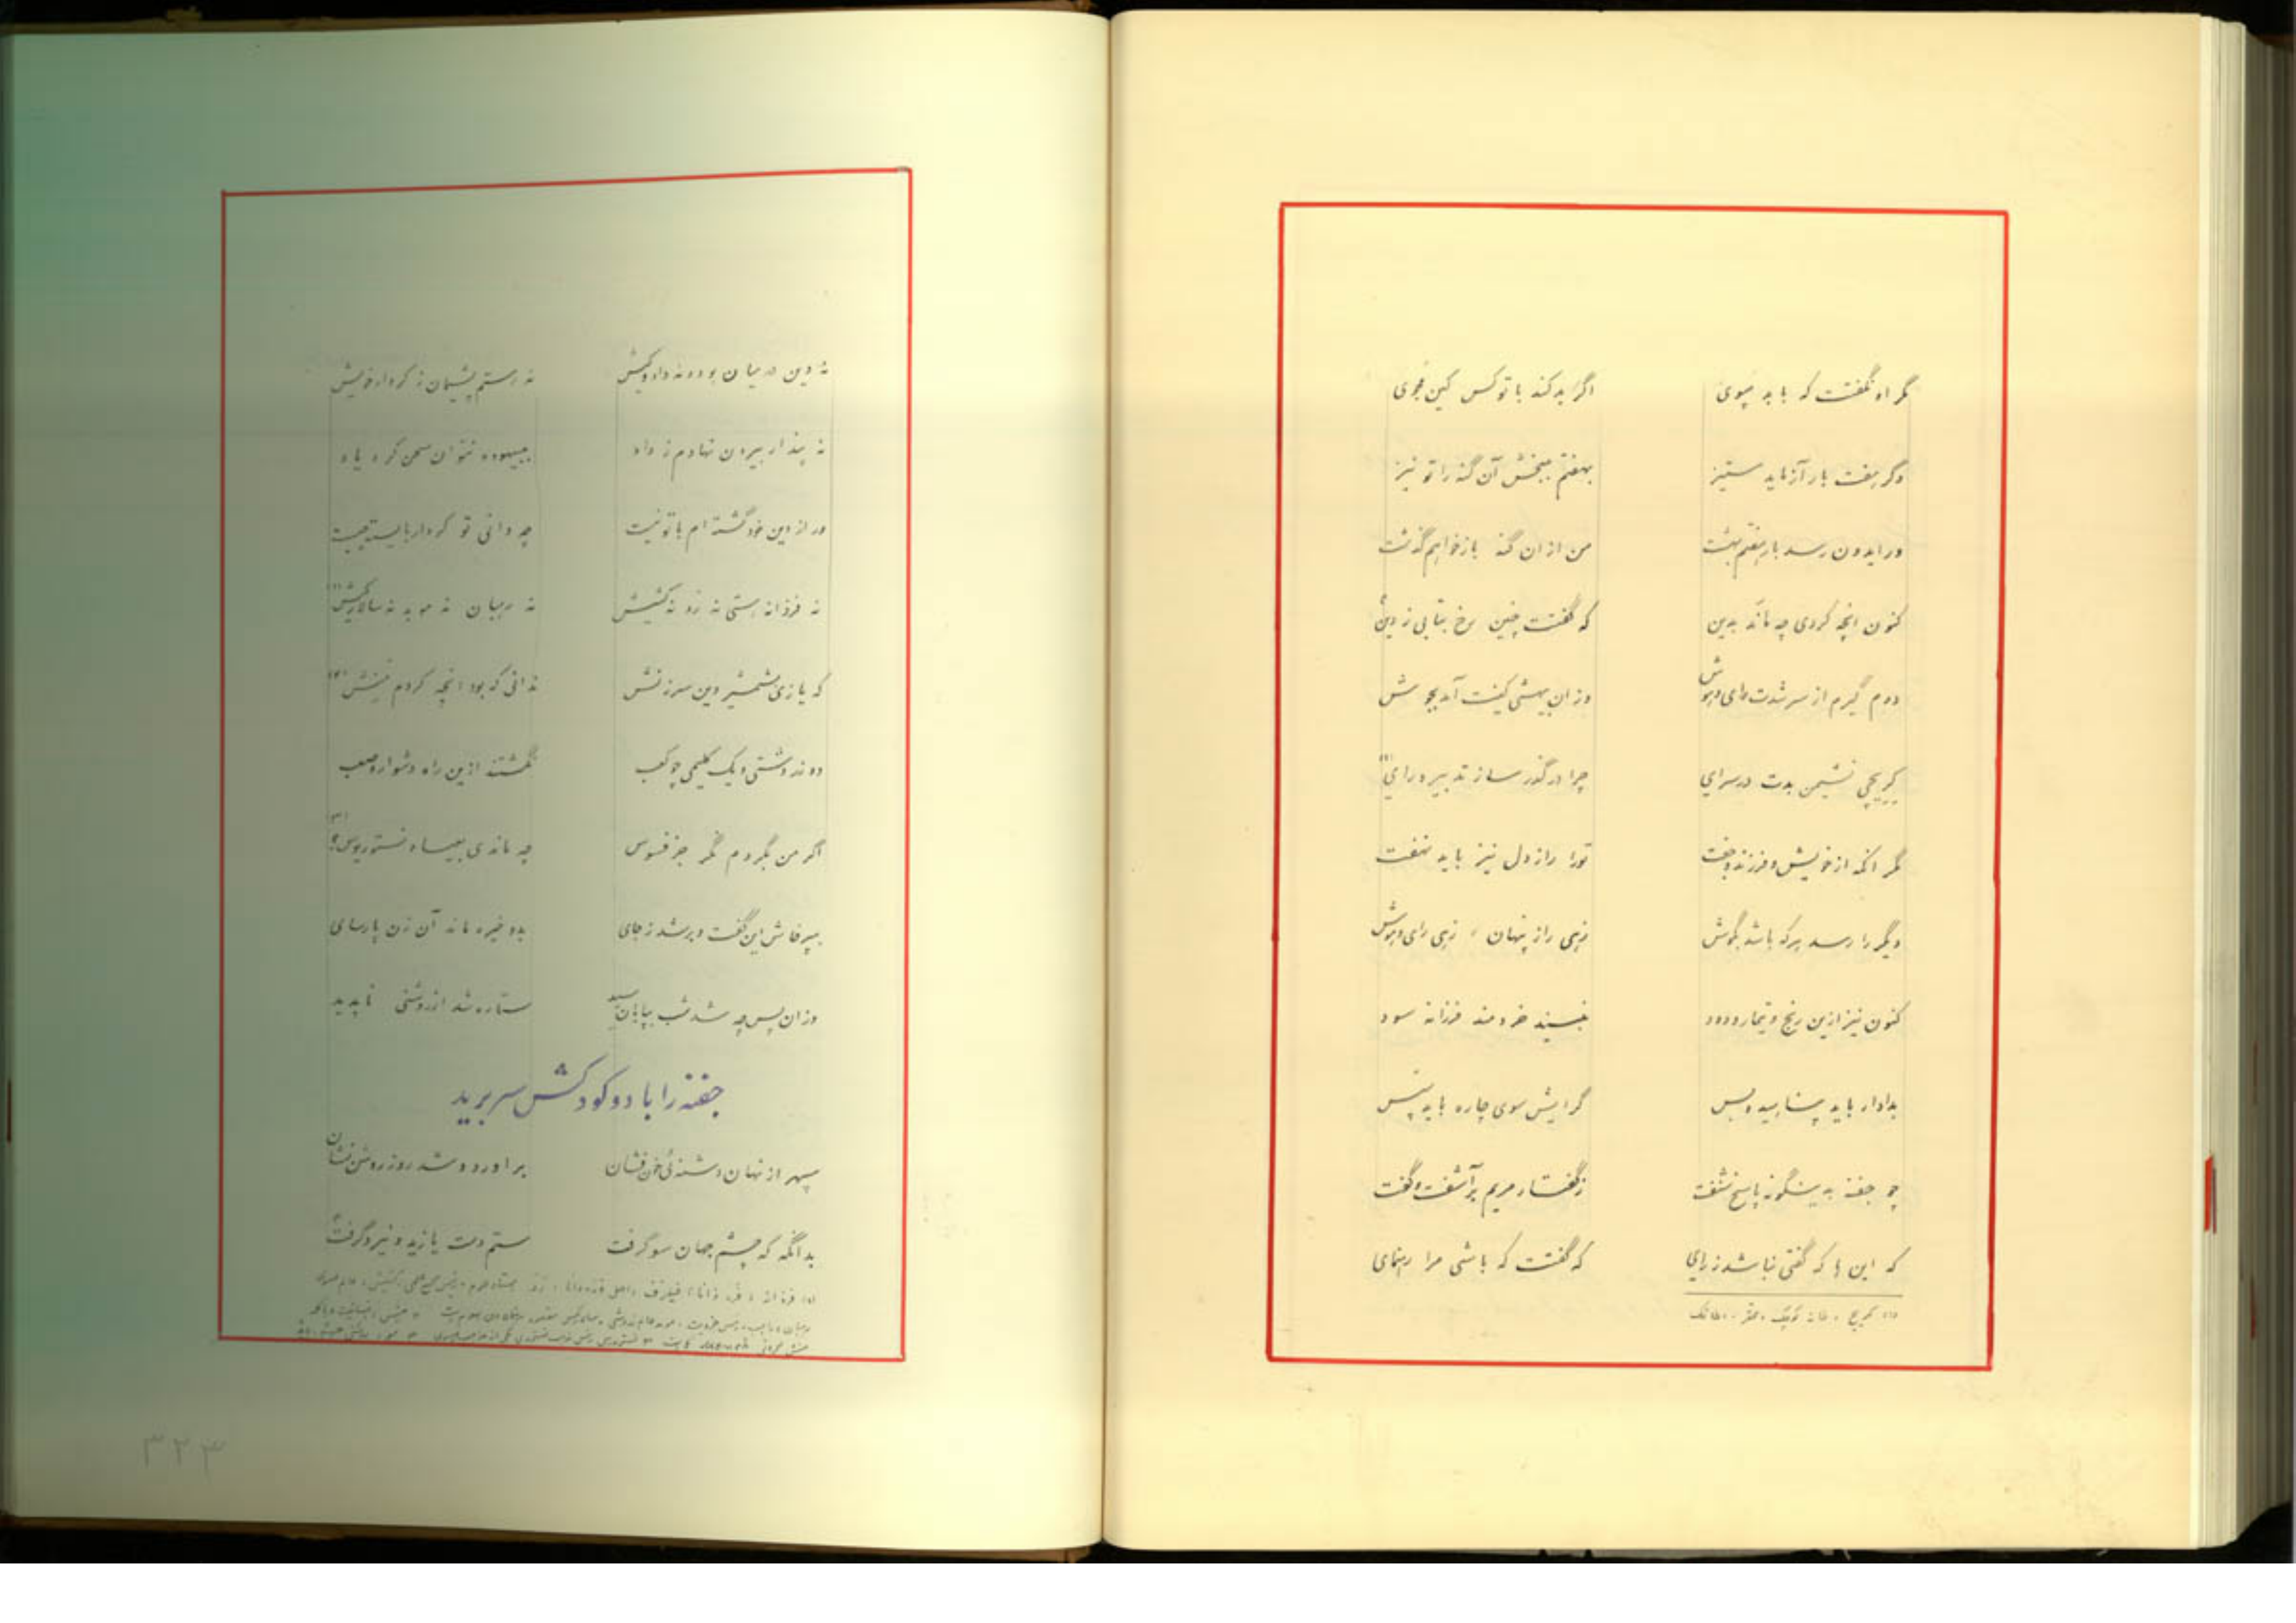 مگر او نگفتت که باید مپوی اگر بد کند با تو کس کین مجوی
وگر هفت بار آزماید ستیز بهفتم ببخش آن گنه را تو نیز
ور ایدون رسد بار هفتم بهشت من از ان گنه باز خواهم گذشت
کنون انچه کردی چه ماند بدین که گفتت چنین رخ بتابی ز دین؟
دوم گیرم از سر شدت رای و هوش وز ان بیهشی کینت آمد بجوش
کریچی نشیمن بدت در سرای چرا در گذر ساز تدبیر و رای (۱)
مگر انکه از خویش و فرزند و جفت تورا راز دل نیز باید نهفت
دیگر را رسد هر که باشد بگوش زهی راز پنهان، زهی رای و هوش
کنون نیز ازین رنج و تیمار و دود نبیند خردمند فرزانه سود
بدادار باید پناهید و بس گرایش سوی چاره باید سپس
چو جفنه بدینگونه پاسخ شنفت ز گفتار مریم برآشفت و گفت
که این ها که گفتی نباشد ز رای که گفتت که باشی مرا رهنمای
(۱) کریچ، خانه کوچک
نه دین در میان بود و نه داد و کیش نه رستم پشیمان ز کردار خویش
نه پندار بیرون نهادم ز داد ببیهوده نتوان سخن کرد یاد
ور از دین خود گشته ام با تو نیست چه دانی تو کردار بایسته چیست
نه فرزانه هستی نه زو نه کشیش نه رهبان نه موبد نه سالار کیش (۱)
که یازی شمشیر دین سرزنش ندانی که بود انچه کردم منش (۲)
دو زردشتی و یک کلیمی چو کعب نگشتند ازین راه دشوار و صعب
اگر من بگردم مگر جز فسوس چه ماندی بعیسا و نستوریوس؟ (۳)
بپرخاش این گفت و برشد ز جای بدو خیره ماند آن زن پارسای
وزان پس چه شد شب بپایان رسید ستاره شد از روشنی ناپدید
جفنه را با دو کودکش سر برید
سپهر از نهان دشنه‌ئی خون فشان برآورد و شد روز روشن نشان
بدانگه که چشم جهان سو گرفت ستم دست یازید و نیرو گرفت
۳۲۳